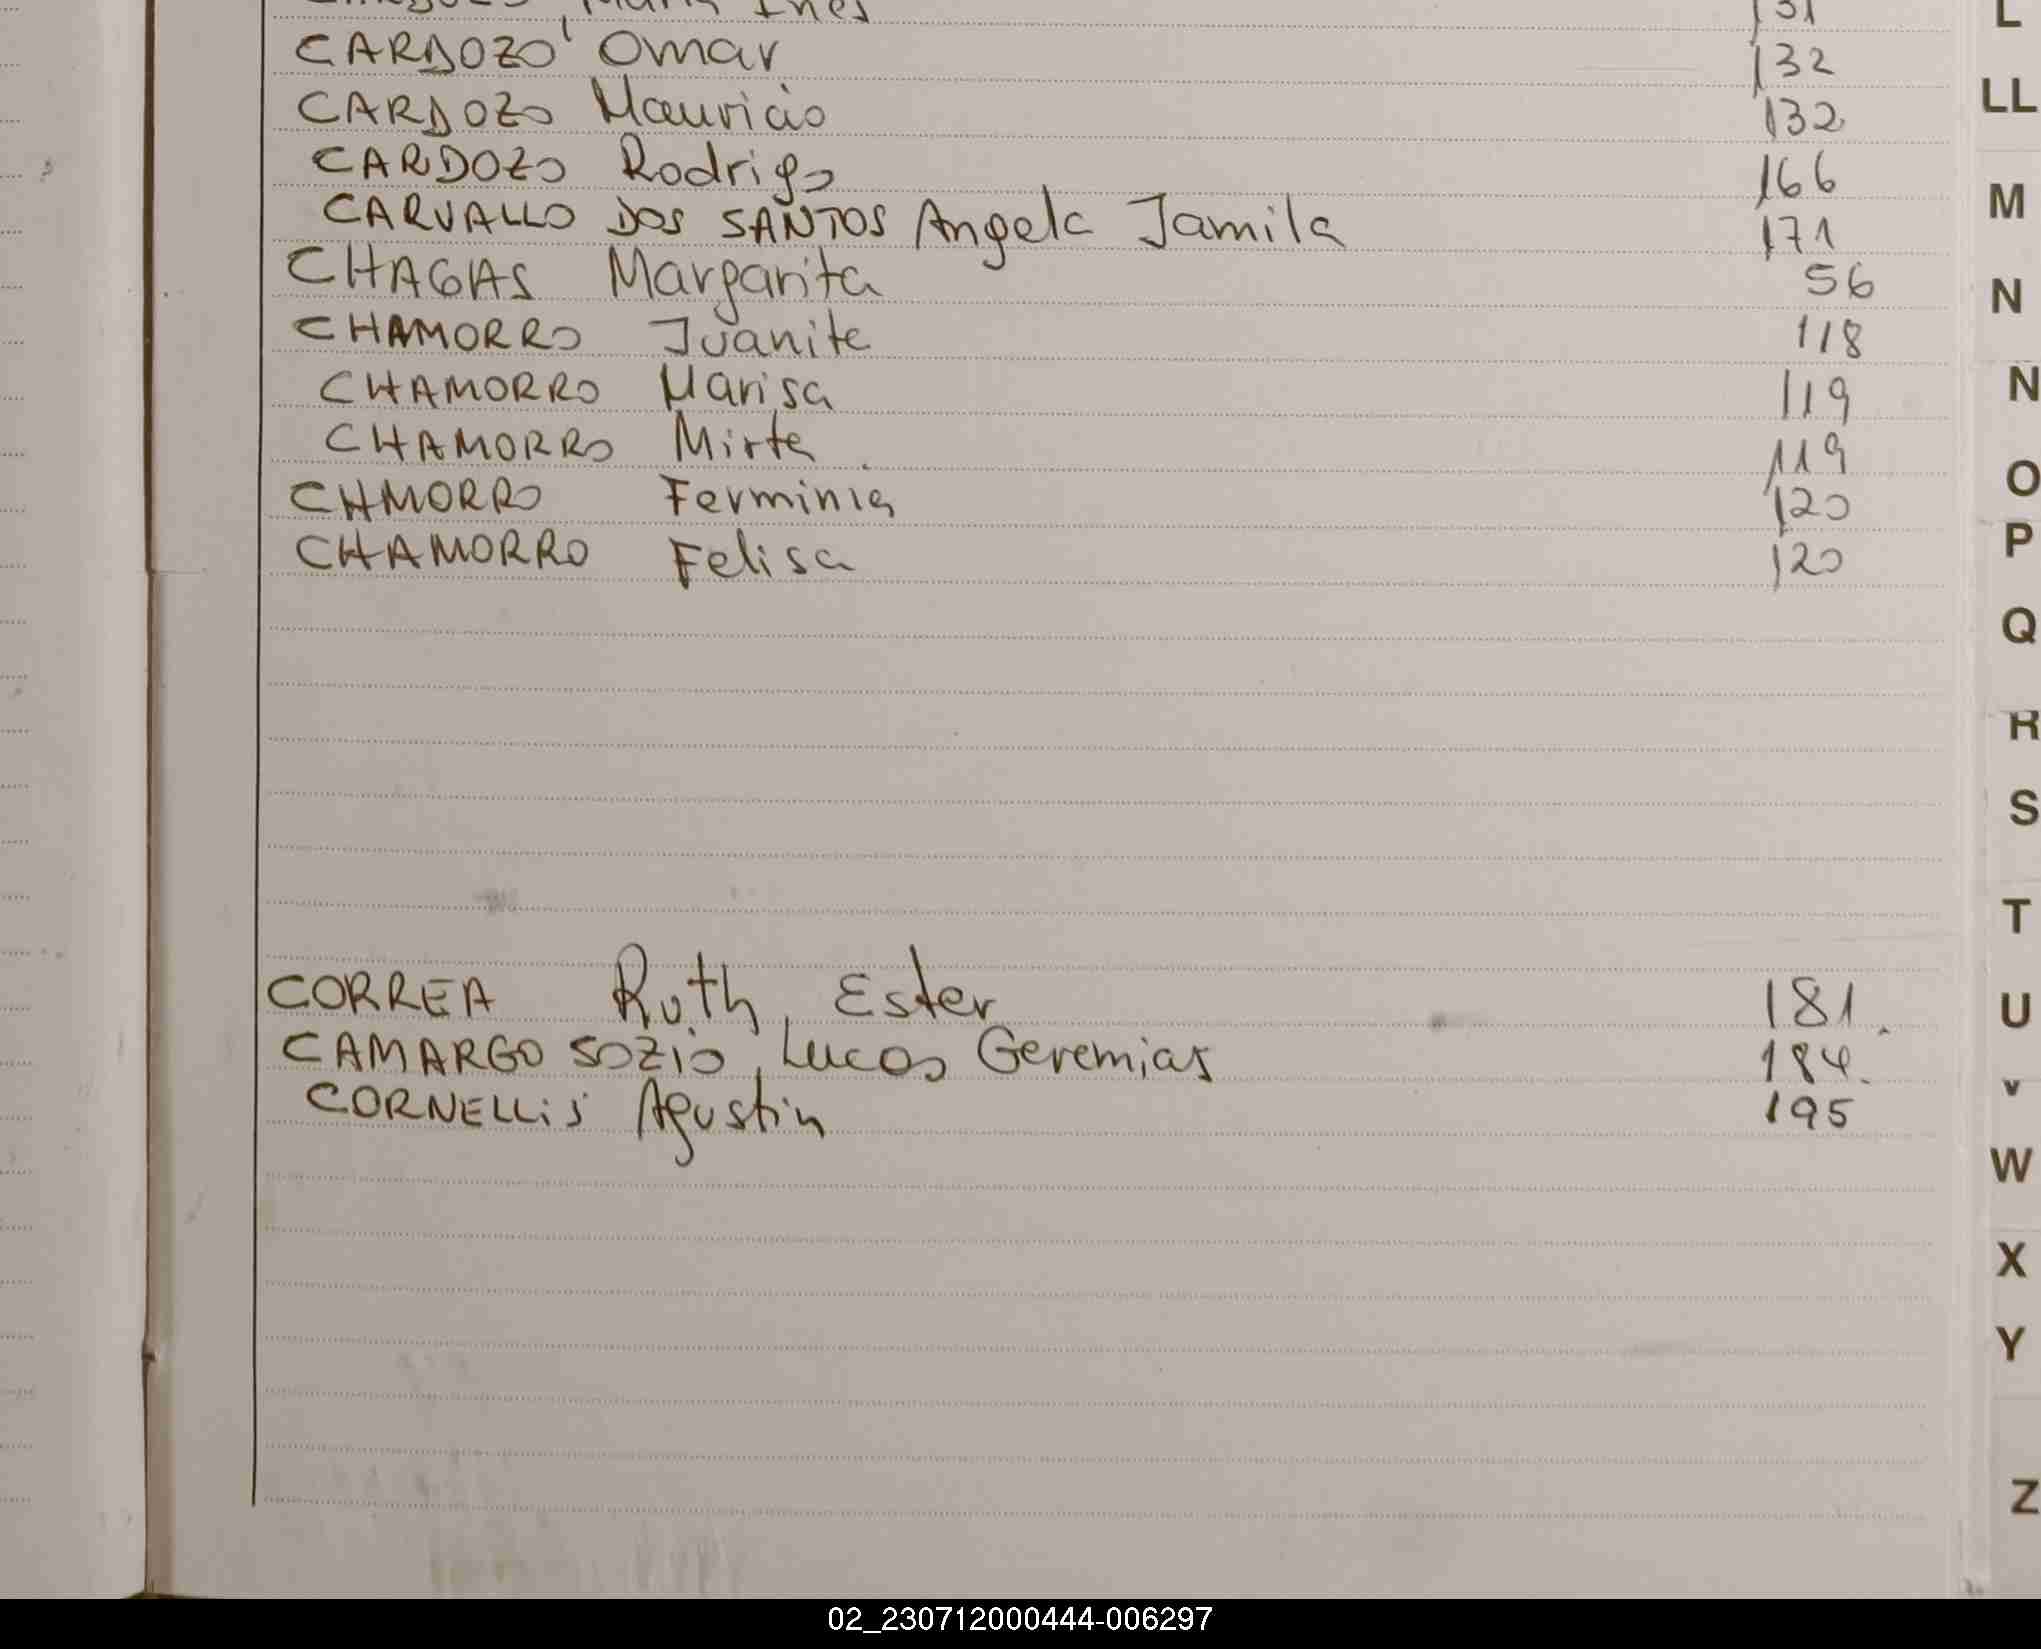 María Inés 131
CARDOZO, Omar 132
CARDOZO Mauricio 132
CARDOZO Rodrigo 166
CARVALLO DOS SANTOS Angela Jamila 171
CHAGAS Margarita 56
CHAMORRO Juanita 118
CHAMORRO Marisa 119
CHAMORRO Mirta 119
CHMORRO Ferminia 120
CHAMORRO Felisa 120
CORREA Ruth, Ester 181.
CAMARGO SOZIO, Lucas Geremias 184.
CORNELLIS Agustin 195
L
LL
M
N
N
O
P
Q
R
S
T
U
V
W
X
Y
Z
02_230712000444-006297